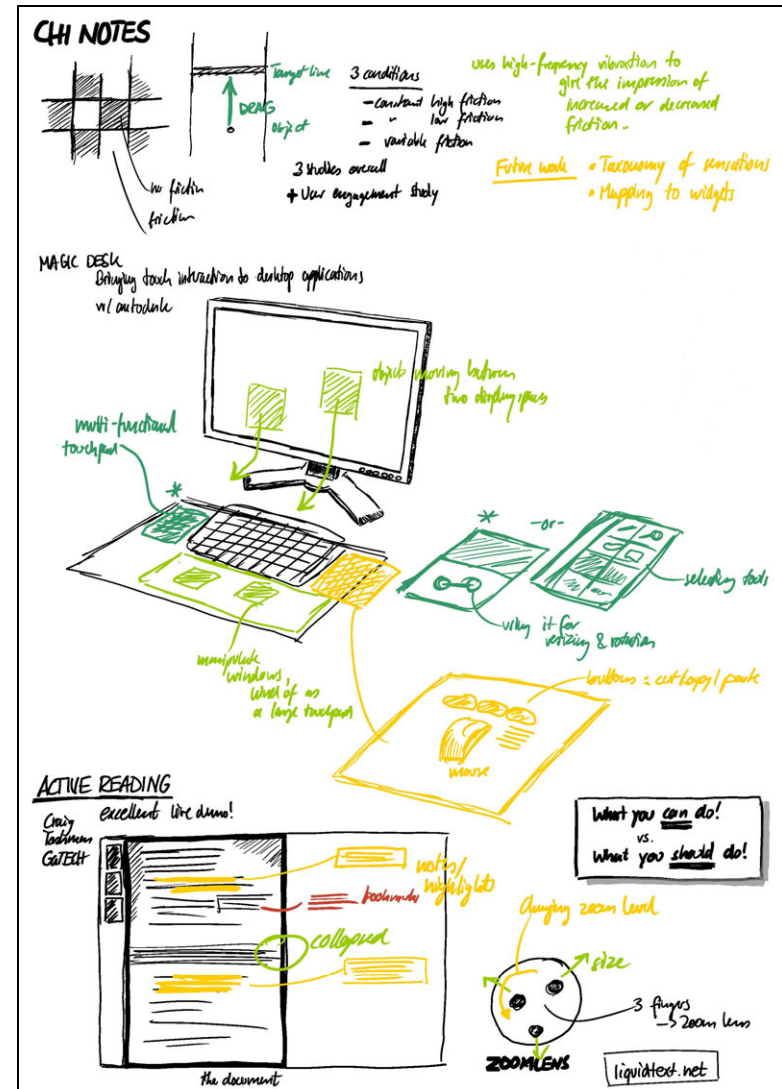 CHI NOTES
Target line
DRAG
object
no friction
friction
3 conditions
- constant high friction
- " low friction
- variable friction
3 studies overall
+ User engagement study
uses high-frequency vibration to
give the impression of
increased or decreased
friction.
Future work
• Taxonomy of sensations
• Mapping to widgets
MAGIC DESK
Bringing touch interaction to desktop applications
w/ autodesk
objects moving between
two display spaces
multi-functional
touchpad
*
* -or-
selecting tools
using it for
resizing & rotation
manipulate
windows,
as
a large touchpad
buttons = cut/copy/paste
mouse
ACTIVE READING
Craig
Tashman
GaTECH
excellent live demo!
notes/
highlights
bookmarks
collapsed
the document
What you can do!
vs.
What you should do!
changing zoom level
size
3 fingers
-> zoom lens
ZOOMLENS
liquidtext.net